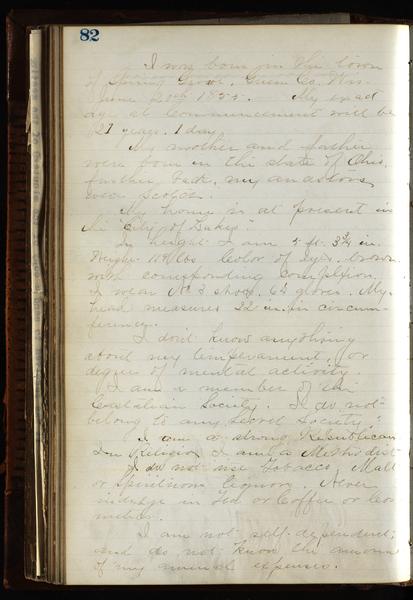 82
I was born in the town
of Spring Grove, Green Co. Wis.
June 20th 1855. My exact
age at Commencement will be
21 years, 1 day.
My mother and father
were born in the state of Ohio,
further back, my ancestors
were Scotch.
My home is at present in
the "City of Lakes".
In height I am 5 ft. 3¾ in.
Weight lbs Color of eyes, brown
with corresponding complexion.
I wear No 3 shoes, 6¼ gloves. My
head measures 22 in. in circum-
ference.
I don't know anything
about my temperament, or
degree of mental activity.
I am a member of the
Castalian Society. I do not
belong to any "Secret Society".
I am a strong Republican
In Religion I am a Methodist
I do not use Tobacco, Malt
or Spirituous liquors. Never
indulge in Tea or Coffee or Cos
metics.
I am not self-dependent;
and do not know the amount
of my annual expenses.